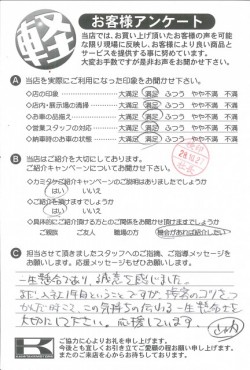 軽
お客様アンケート
当店では、お買い上げ頂いたお客様の声を可能
な限り現場に反映し、お客様により良い商品と
サービスを提供する事に努めています。
大変お手数ですが是非お声をお聞かせ下さい。
A 当店を実際にご利用になった印象をお聞かせ下さい。
◇店の印象 大満足 満足 ふつう やや不満 不満
◇店内・展示場の清掃 大満足 満足 ふつう やや不満 不満
◇お車の品揃え 大満足 満足 ふつう やや不満 不満
◇営業スタッフの対応 大満足 満足 ふつう やや不満 不満
◇納車時のお車の状態 大満足 満足 ふつう やや不満 不満
B 当店はご紹介を大切にしております。
ご紹介キャンペーンについてお聞かせ下さい。
◇カミタケご紹介キャンペーンのご説明はありましたでしょうか
はい いいえ
◇ご紹介を頂けますでしょうか
はい いいえ
◇具体的にご紹介頂ける方とのご関係をお聞かせ頂けますでしょうか
ご親族 ご友人 職場の方 機会があれば紹介したい
C 担当させて頂きましたスタッフへのご指摘、ご指導メッセージを
お願いします。応援メッセージもぜひお願いします。
一生懸命であり、誠意を感じました。
まだ入社1年目ということですが、接客のコツをつ
かんだけること、この気持ちの伝わる一生懸命さを
大切にして下さい。応援しています。
K
ご協力に心よりお礼を申し上げます。
今後とも宜しくお引き立てご愛顧の程お願い申し上げます。
またのご来店を心からお待ちしております。